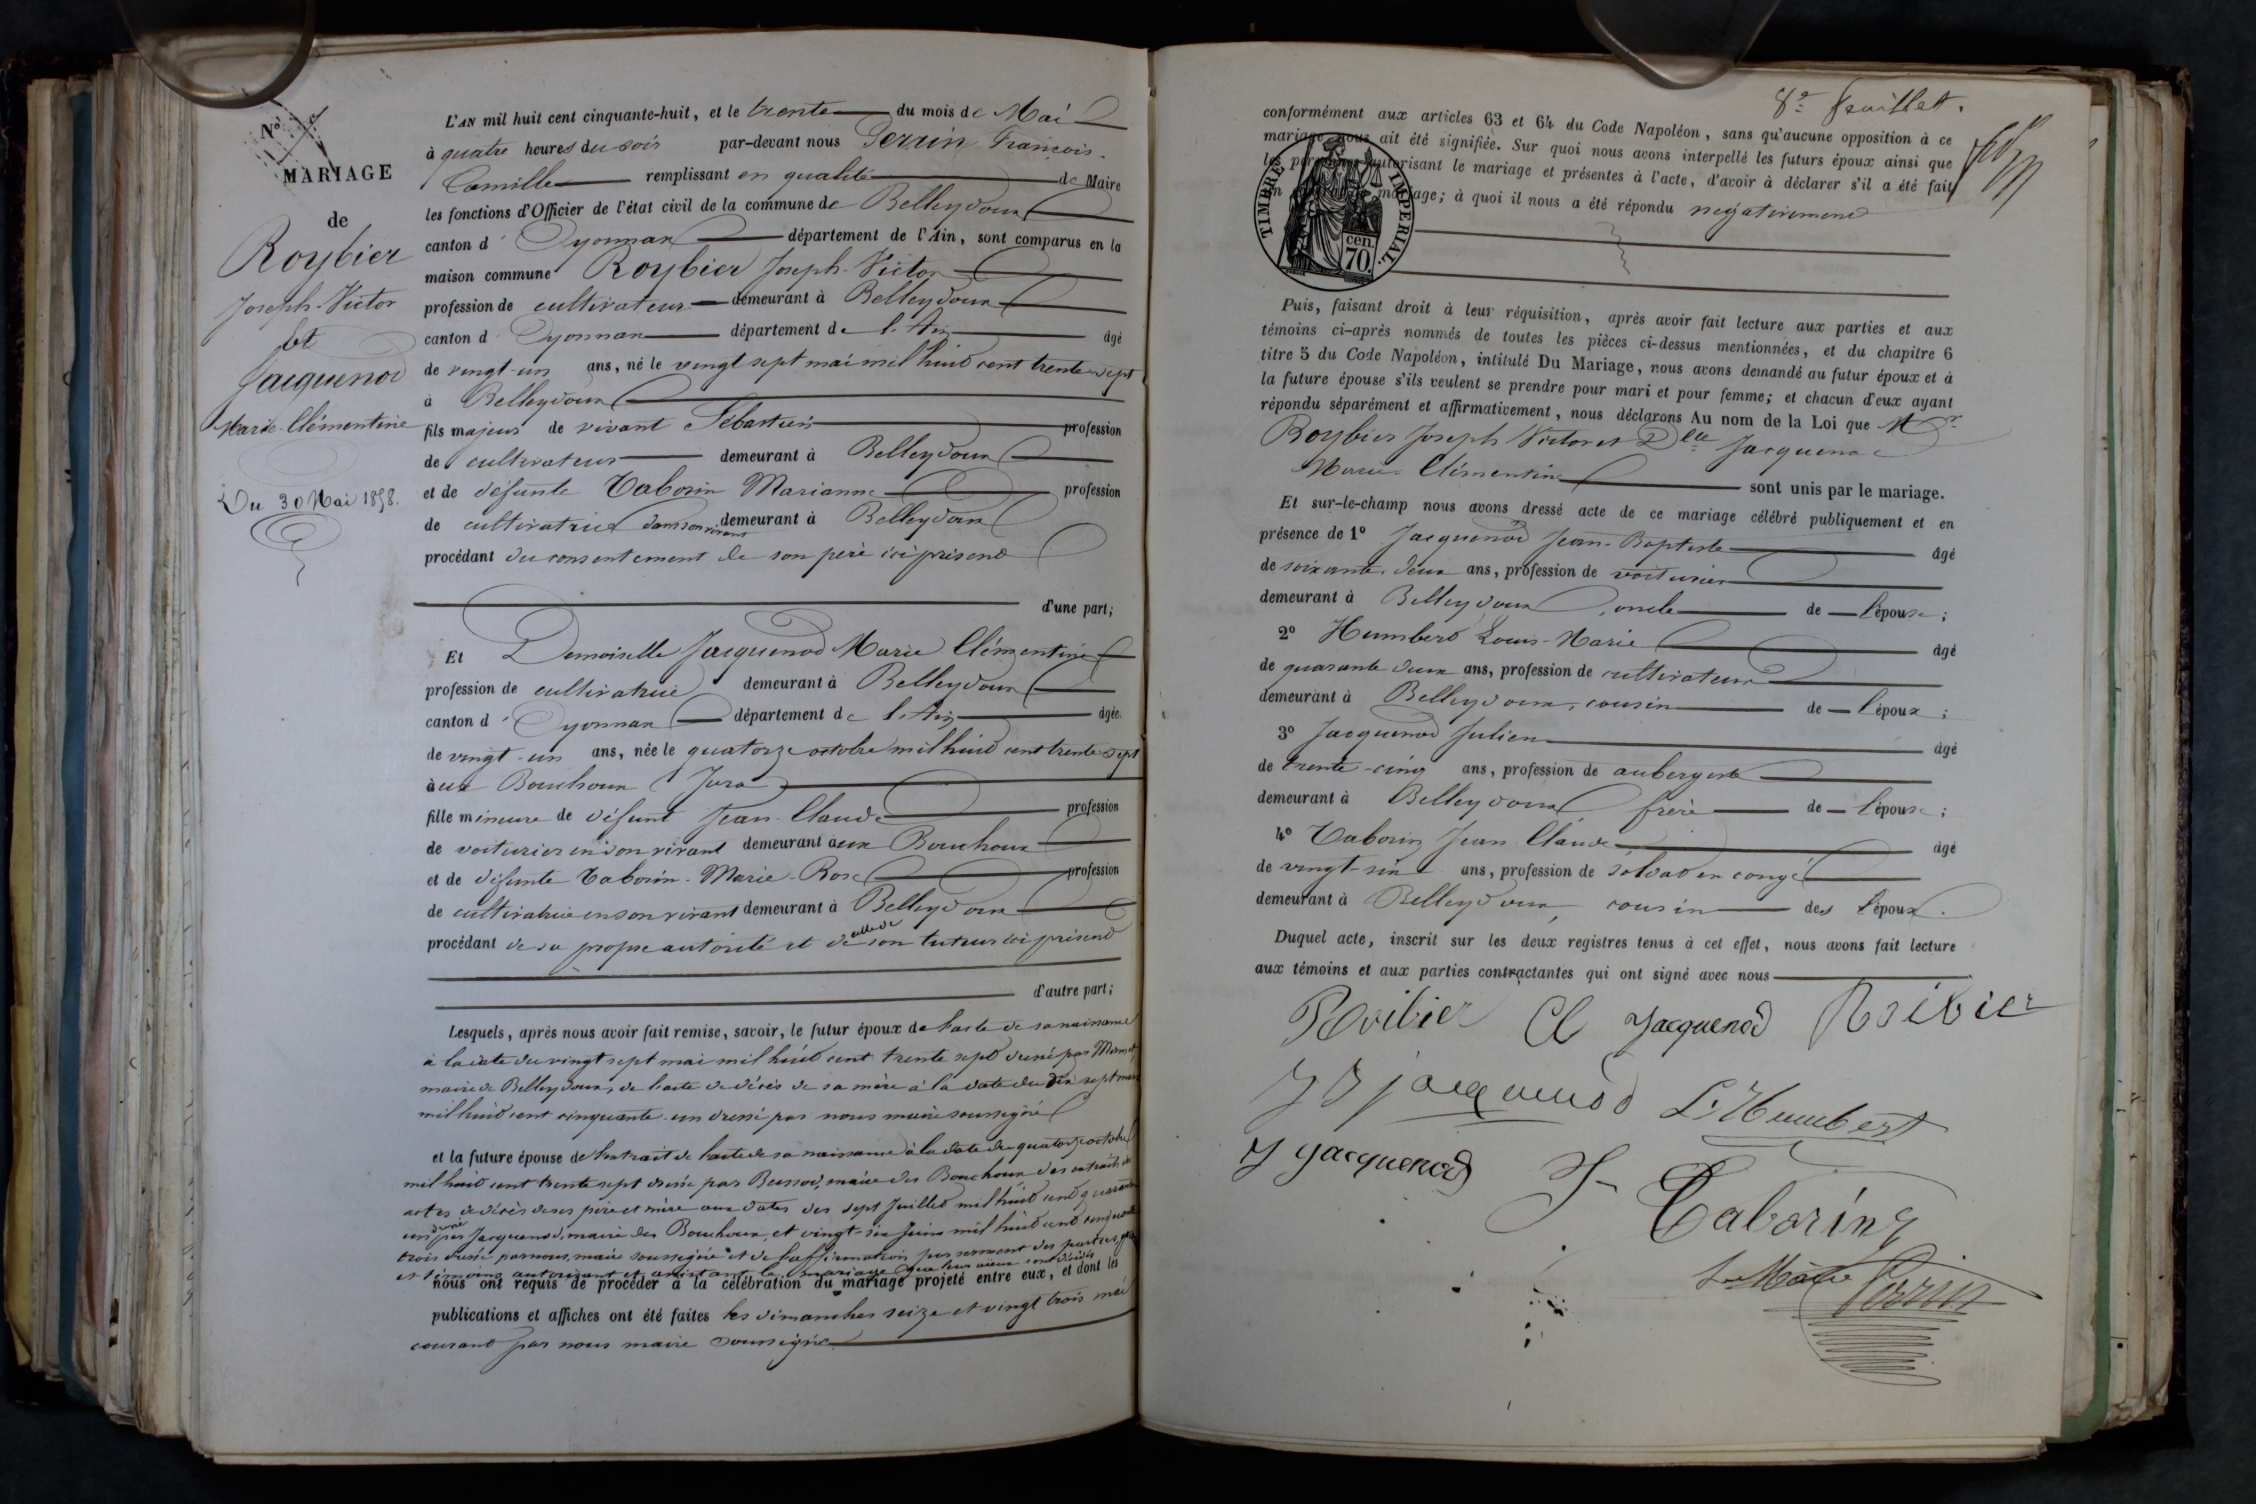 No
MARIAGE
de
Roybier
Joseph-Victor
et
Jacquenod
Marie-Clémentine
Du 30 Mai 1858.
L'AN mil huit cent cinquante-huit, et le trente du mois de Mai
à quatre heures du soir par-devant nous Perrin François-
Camille remplissant en qualité de Maire
les fonctions d'Officier de l'état civil de la commune de Belleydoux
canton d'Oyonnax département de l'Ain, sont comparus en la
maison commune Roybier Joseph-Victor
profession de cultivateur demeurant à Belleydoux
canton d'Oyonnax département de l'Ain âgé
de vingt-un ans, né le vingt sept mai mil huit cent trente-sept
à Belleydoux
fils majeur de vivant Sébastien profession
de cultivateur demeurant à Belleydoux
et de défunte Taborin Marianne profession
de cultivatrice dans son vivant demeurant à Belleydoux
procédant du consentement de son père ici présent
d'une part;
Et Demoiselle Jacquenod Marie Clémentine
profession de cultivatrice demeurant à Belleydoux
canton d'Oyonnax département de l'Ain âgée
de vingt-un ans, née le quatorze octobre mil huit cent trente sept
aux Bouchoux Jura
fille mineure de défunt Jean-Claude profession
de voiturier en son vivant demeurant aux Bouchoux
et de défunte Taborin-Marie-Rose profession
de cultivatrice en son vivant demeurant à Belleydoux
procédant de sa propre autorité et de celle de son tuteur ici présent
d'autre part;
Lesquels, après nous avoir fait remise, savoir, le futur époux de l'acte de sa naissance
à la date du vingt sept mai mil huit cent trente sept dressé par
maire de Belleydoux, de l'acte de décès de sa mère à la date du dix sept mars
mil huit cent cinquante-un dressé par nous maire soussigné
et la future épouse de l'extrait de l'acte de sa naissance à la date du quatorze octobre
mil huit cent trente sept dressé par maire des Bouchoux des extraits des
actes de décès de ses père et mère aux dates des sept Juillet mil huit cent quarante
un dressé par Jacquenod, maire des Bouchoux, et vingt-six Juin mil huit cent cinquante
trois dressé par nous, maire soussigné et de l'affirmation par serment des parties
et témoins autorisant et assistant le mariage que leurs aïeux sont décédés
nous ont requis de procéder à la célébration du mariage projeté entre eux, et dont les
publications et affiches ont été faites les dimanches seize et vingt trois mai
courant par nous maire soussigné
8e feuillet.
conformément aux articles 63 et 64 du Code Napoléon, sans qu'aucune opposition à ce
mariage nous ait été signifiée. Sur quoi nous avons interpellé les futurs époux ainsi que
les personnes autorisant le mariage et présentes à l'acte, d'avoir à déclarer s'il a été fait
mariage; à quoi il nous a été répondu négativement
TIMBRE IMPERIAL.
cen.
70.
Puis, faisant droit à leur réquisition, après avoir fait lecture aux parties et aux
témoins ci-après nommés de toutes les pièces ci-dessus mentionnées, et du chapitre 6
titre 5 du Code Napoléon, intitulé Du Mariage, nous avons demandé au futur époux et à
la future épouse s'ils veulent se prendre pour mari et pour femme; et chacun d'eux ayant
répondu séparément et affirmativement, nous déclarons Au nom de la Loi que Mr
Roybier Joseph Victor et Dlle Jacquenod
Marie-Clémentine sont unis par le mariage.
Et sur-le-champ nous avons dressé acte de ce mariage célébré publiquement et en
présence de 1° Jacquenod Jean-Baptiste âgé
de soixante-deux ans, profession de voiturier
demeurant à Belleydoux, oncle de l'épouse;
2° Humbert Louis-Marie âgé
de quarante deux ans, profession de cultivateur
demeurant à Belleydoux, cousin de l'époux;
3° Jacquenod Julien âgé
de trente-cinq ans, profession de aubergiste
demeurant à Belleydoux frère de l'épouse;
4° Taborin Jean Claude âgé
de vingt-six ans, profession de soldat en congé
demeurant à Belleydoux, cousin des époux.
Duquel acte, inscrit sur les deux registres tenus à cet effet, nous avons fait lecture
aux témoins et aux parties contractantes qui ont signé avec nous
Roibier Cl Jacquenod Roibier
J B jacquenod L. Humbert
J Jacquenod J- Taborin
Le Maire Perrin